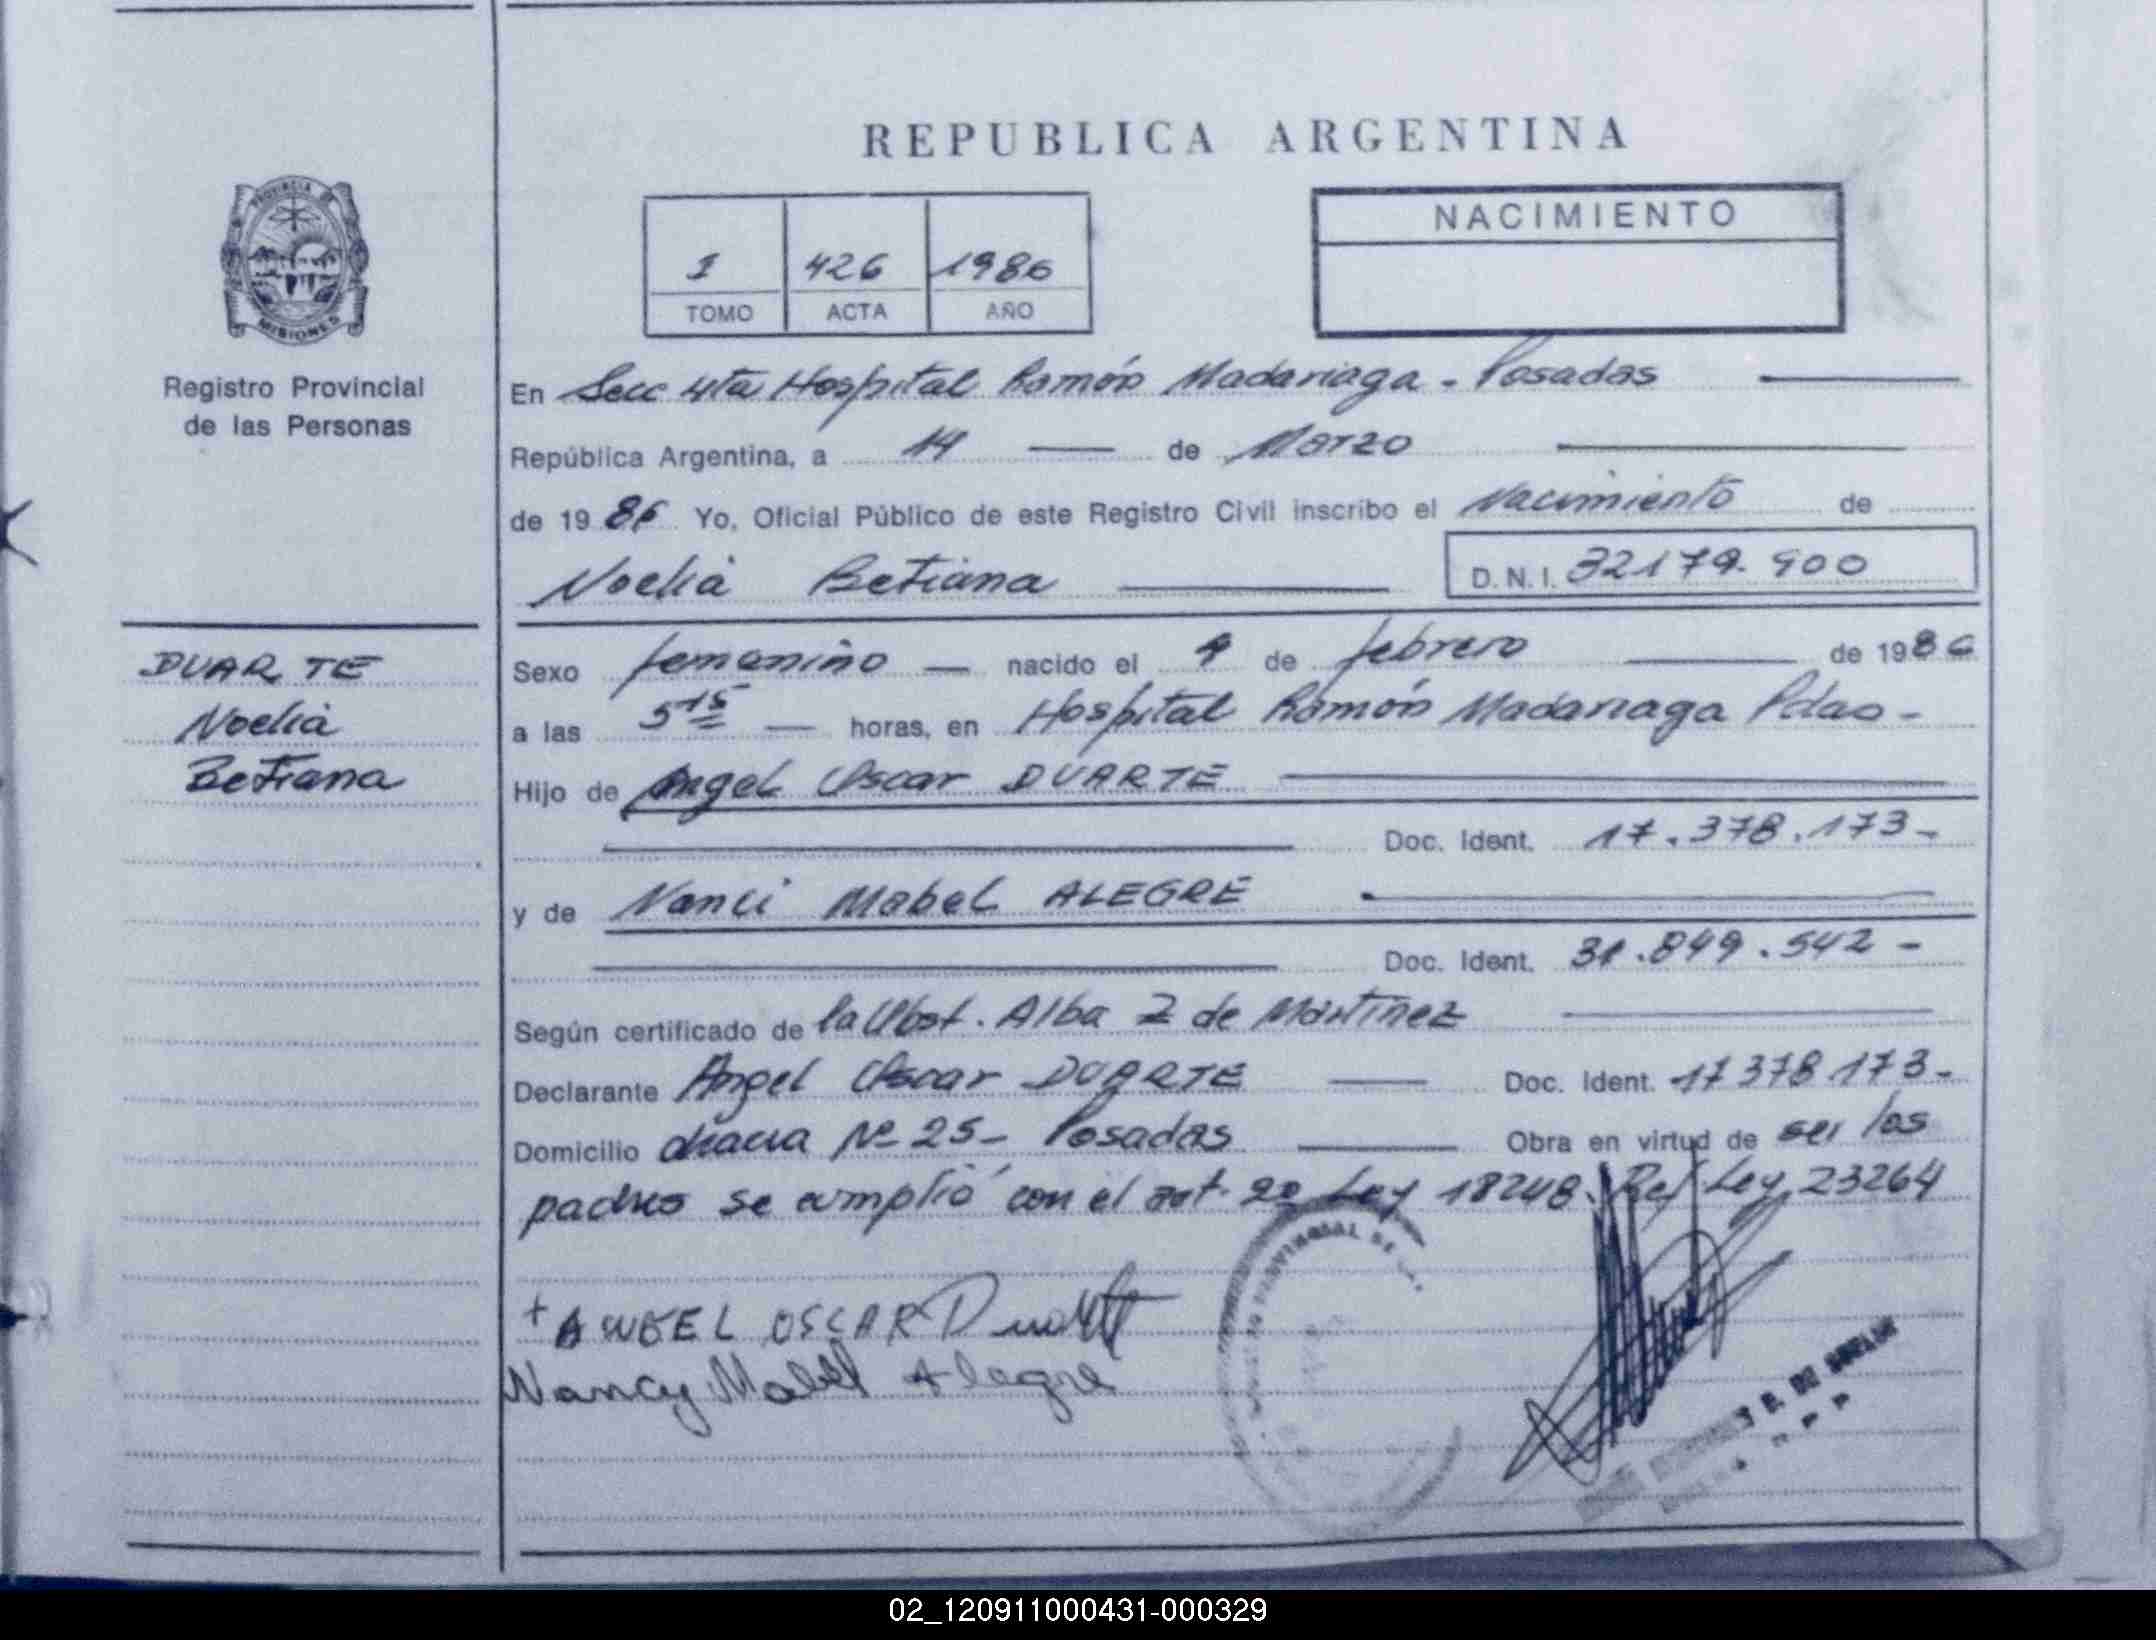 REPUBLICA ARGENTINA
PROVINCIA DE
MISIONES
Registro Provincial
de las Personas
1 426 1986
TOMO ACTA AÑO
NACIMIENTO
En Secc 4ta Hospital Ramón Madariaga - Posadas
República Argentina, a 14 de Marzo
de 1986 Yo, Oficial Público de este Registro Civil inscribo el Nacimiento de
Noelia Betiana D.N.I. 32179.900
DUARTE
Noelia
Betiana
Sexo femenino nacido el 9 de febrero de 1986
a las 5 15 horas, en Hospital Ramón Madariaga Pdas -
Hijo de Angel Oscar DUARTE
Doc. Ident. 17.378.173-
y de Nanci Mabel ALEGRE
Doc. Ident. 31.849.542-
Según certificado de la Obst. Alba Z de Martinez
Declarante Angel Oscar DUARTE Doc. Ident. 17378173-
Domicilio chacra Nº 25- Posadas Obra en virtud de ser los
padres se cumplió con el art. 2º Ley 18248. Ref Ley 23264
+ ANGEL OSCAR Duarte
Nancy Mabel Alegre
PROVINCIAL DE
02_120911000431-000329